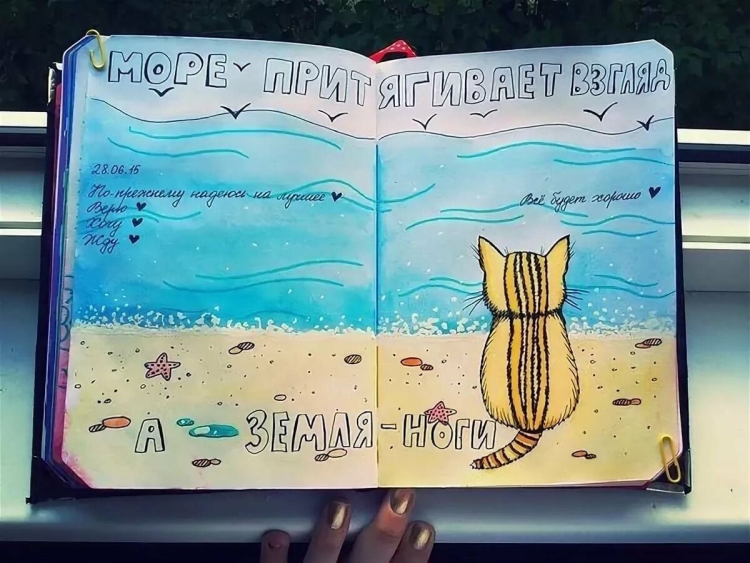 МОРЕ ПРИТЯГИВАЕТ ВЗГЛЯД
28.06.15
По прежнему надеюсь на лучшее
Верю
Хочу
Жду
Всё будет хорошо
А ЗЕМЛЯ-НОГИ